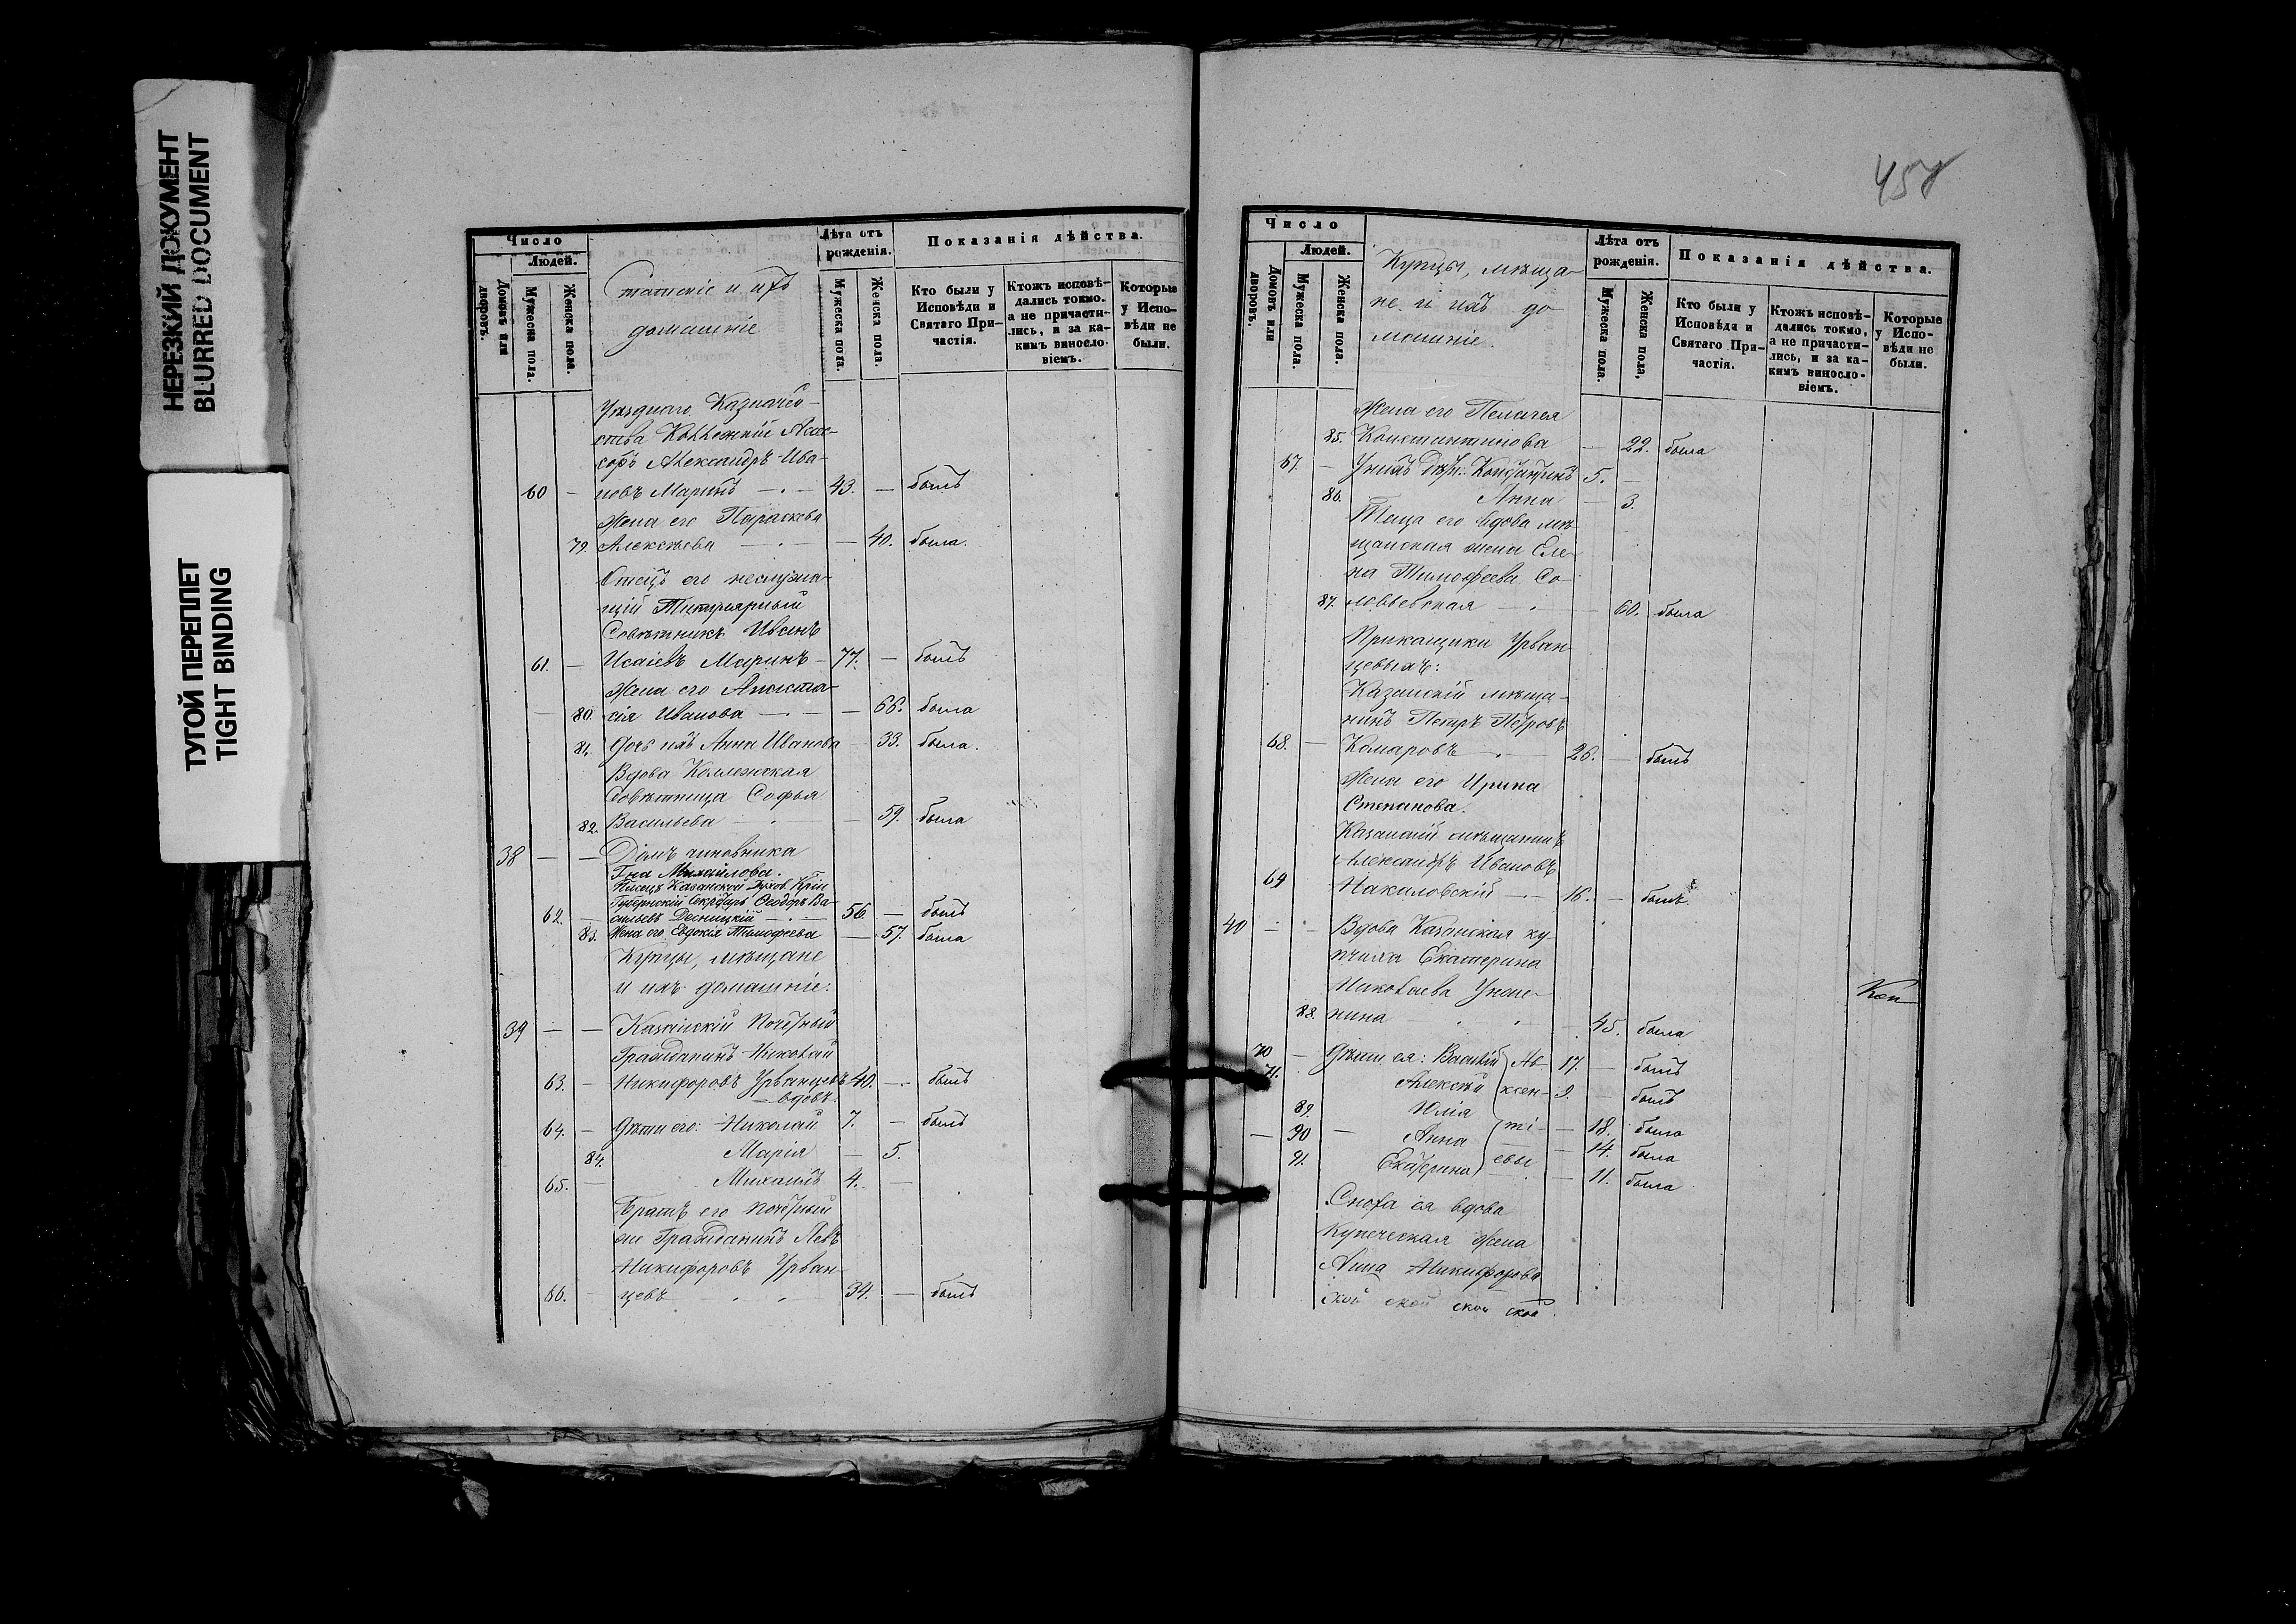 НЕРЕЗКИЙ ДОКУМЕНТ
BLURRED DOCUMENT
ТУГОЙ ПЕРЕПЛЕТ
TIGHT BINDING
Число
Людей.
Домовъ или дворовъ.
Мужеска пола.
Женска пола.
Статскіе и ихъ
домашніе
Лѣта отъ рожденія.
Мужеска пола.
Женска пола.
Показанія дѣйства.
Кто были у Исповѣди и Святаго Причастія.
Ктожъ исповѣдались токмо, а не причастились, и за какимъ винословіемъ.
Которые у Исповѣди не были.
Уѣзднаго Казначей-
ства Коллежскій Асес-
соръ Александръ Ива-
60 — новъ Маринъ — 43. — былъ
Жена его Параскева
79. Алексѣева — — 40. была.
Отецъ его неслужа-
щій Титулярный
Совѣтникъ Иванъ
61. — Исаіевъ Маринъ — 77. — былъ
Жена его Анаста-
— 80. сія Иванова — — 66. была
81. Дочь ихъ Анна Иванова — 33. была.
Вдова Коллежская
Совѣтница Софья
82. Васильева — 59. была
38 — — Домъ чиновника
Гна Михайлова.
Писецъ Казанской Духов.
Губернскій Секрдарь Ѳеодоръ Ва-
62. — сильевъ Десницкій — 56 — былъ
83. Жена его Евдокія Тимофеева — 57. была
Купцы, мѣщане
и ихъ домашніе.
39 — — Казанскій Почетный
Гражданинъ Николай
63. — Никифоровъ Урванцевъ 40. — былъ
— вдовъ.
64. — Дѣти его: Николай 7. — былъ
84. Марія — 5.
65. — Михаилъ 4. —
Братъ его Почетный
же Гражданинъ Левъ
Никифоровъ Урван-
66. — цевъ 34. — былъ
Число
Людей.
Домовъ или дворовъ.
Мужеска пола.
Женска пола.
Купцы, мѣща-
не и ихъ до-
машніе.
Лѣта отъ рожденія.
Мужеска пола.
Женска пола,
Показанія дѣйства.
Кто были у Исповѣдя и Святаго Причастія.
Ктожъ исповѣдались токмо, а не причастились, и за какимъ винословіемъ.
Которые у Исповѣди не были.
Жена его Пелагея
85. Константинова — 22. была
67. — У нихъ дѣти: 5. —
86. Анна — 3.
Теща его вдова мѣ-
щанская жена Еле-
на Тимофеева Со-
87. ловьевская — — 60. была
Прикащики Урван-
цевыхъ:
Казанскій мѣща-
нинъ Петръ Петровъ
68. — Комаровъ — 26. — былъ
Жена его Ирина
Степанова.
Казанскій мѣщанинъ
Александръ Ивановъ
69 16. — былъ.
40 — — Вдова Казанская ку-
пчиха Екатерина
Николаева
88. — 45. была
70 — Дѣти ея: Василій Ав- 17. — былъ
71. Алексѣй ксен- 9. — былъ
89. Юлія ті- — 18. была
— 90 — Анна — 14. была
91. Екатерина евы — 11. была
Сноха ея вдова
Купеческая жена
Анна Никифорова
ской ской ской ской